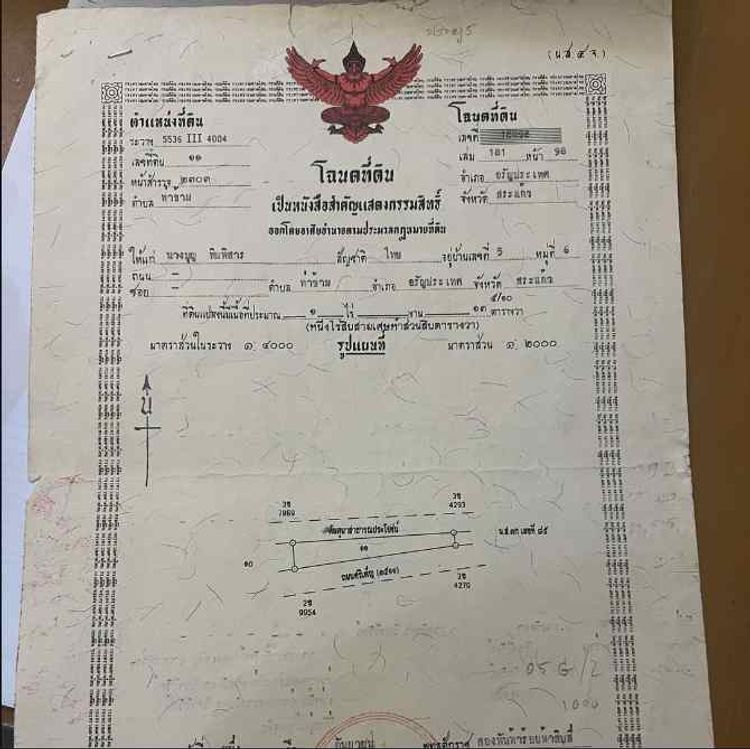 (น.ส.๔ จ)
ตำแหน่งที่ดิน
ระวาง 5536 III 4004
เลขที่ดิน ๑๑
หน้าสำรวจ ๒๓๐๓
ตำบล ท่าข้าม
โฉนดที่ดิน
เลขที่
เล่ม 181 หน้า 98
อำเภอ อรัญประเทศ
จังหวัด สระแก้ว
โฉนดที่ดิน
เป็นหนังสือสำคัญแสดงกรรมสิทธิ์
ออกโดยอาศัยอำนาจตามประมวลกฎหมายที่ดิน
ให้แก่ นางบุญ พิมพิสาร สัญชาติ ไทย อยู่บ้านเลขที่ 5 หมู่ที่ 6
ถนน –
ซอย – ตำบล ท่าข้าม อำเภอ อรัญประเทศ จังหวัด สระแก้ว
๕/๑๐
ที่ดินแปลงนี้มีเนื้อที่ประมาณ ๑ ไร่ - งาน ๑๓ ตารางวา
(หนึ่งไร่สิบสามเศษห้าส่วนสิบตารางวา)
มาตราส่วนในระวาง ๑: ๔๐๐๐ รูปแผนที่ มาตราส่วน ๑: ๒๐๐๐
น
2ข
7989
2ข
4293
น.ส.๓ก เลขที่ ๘๕
๑๑
๑๐
2ข
9954
2ข
4270
05 G/2
1000
กันยายน พุทธศักราช สองพันห้าร้อยห้าสิบสี่